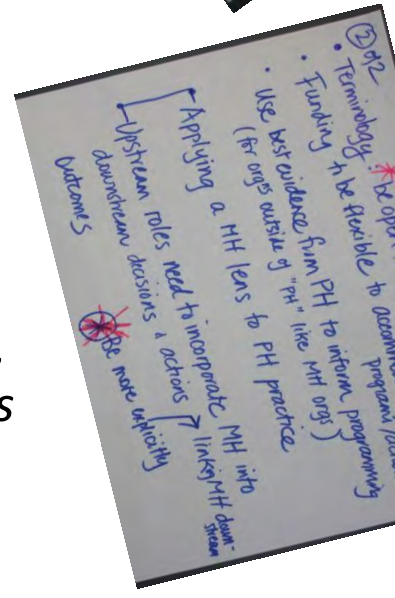 ② of 2
• Terminology * be open
• Funding to be flexible to accomm
programs/
• Use best evidence from PH to inform programming
(for orgs outside of "PH" like MH orgs)
Applying a MH lens to PH practice
Upstream roles need to incorporate MH into
downstream decisions & actions → linking MH down-
stream
outcomes
be more explicitly
s